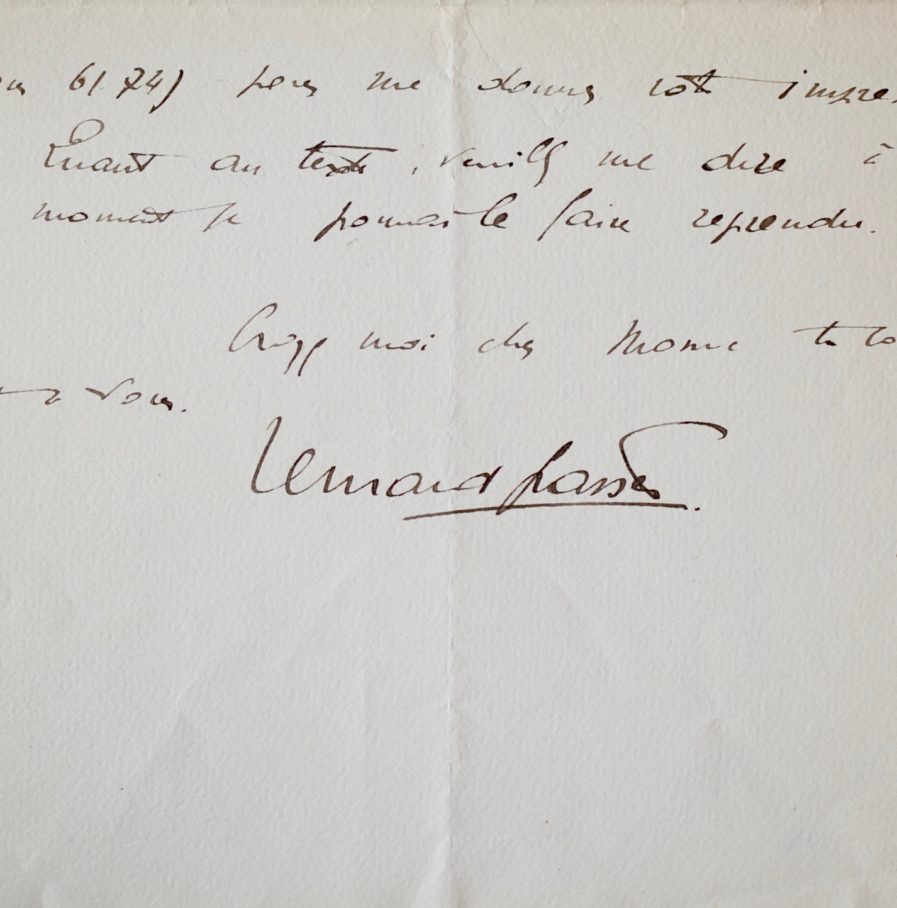 61 74) pour me donner votre impre
Quant au texte, veuillez me dire à
moment je pourrai le faire reprendre.
Croyez moi cher Monsie
à vous.
Bernard Grasset